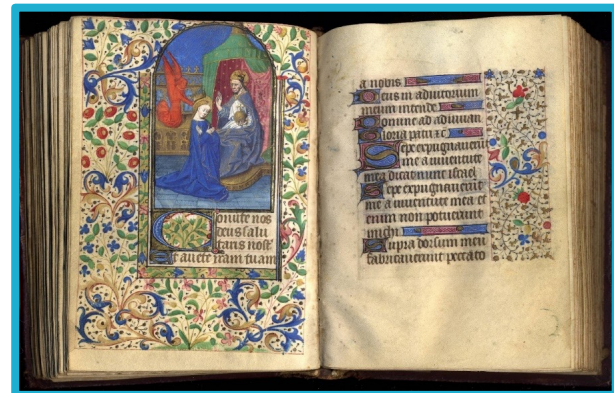 Conuite nos
deus salu
taris nost̄
Et auerte iram tuam
a nobis
Deus in adiutorium
meum intende
Domine ad adiuuan
Gloria patri
Sepe expugnauerūt
me a iuuentute
mea dicat nunc israel
Sepe expugnauerūt
me a iuuentute mea et
enim non potuerunt
michi
Supra dorsum meū
fabricauerunt peccato